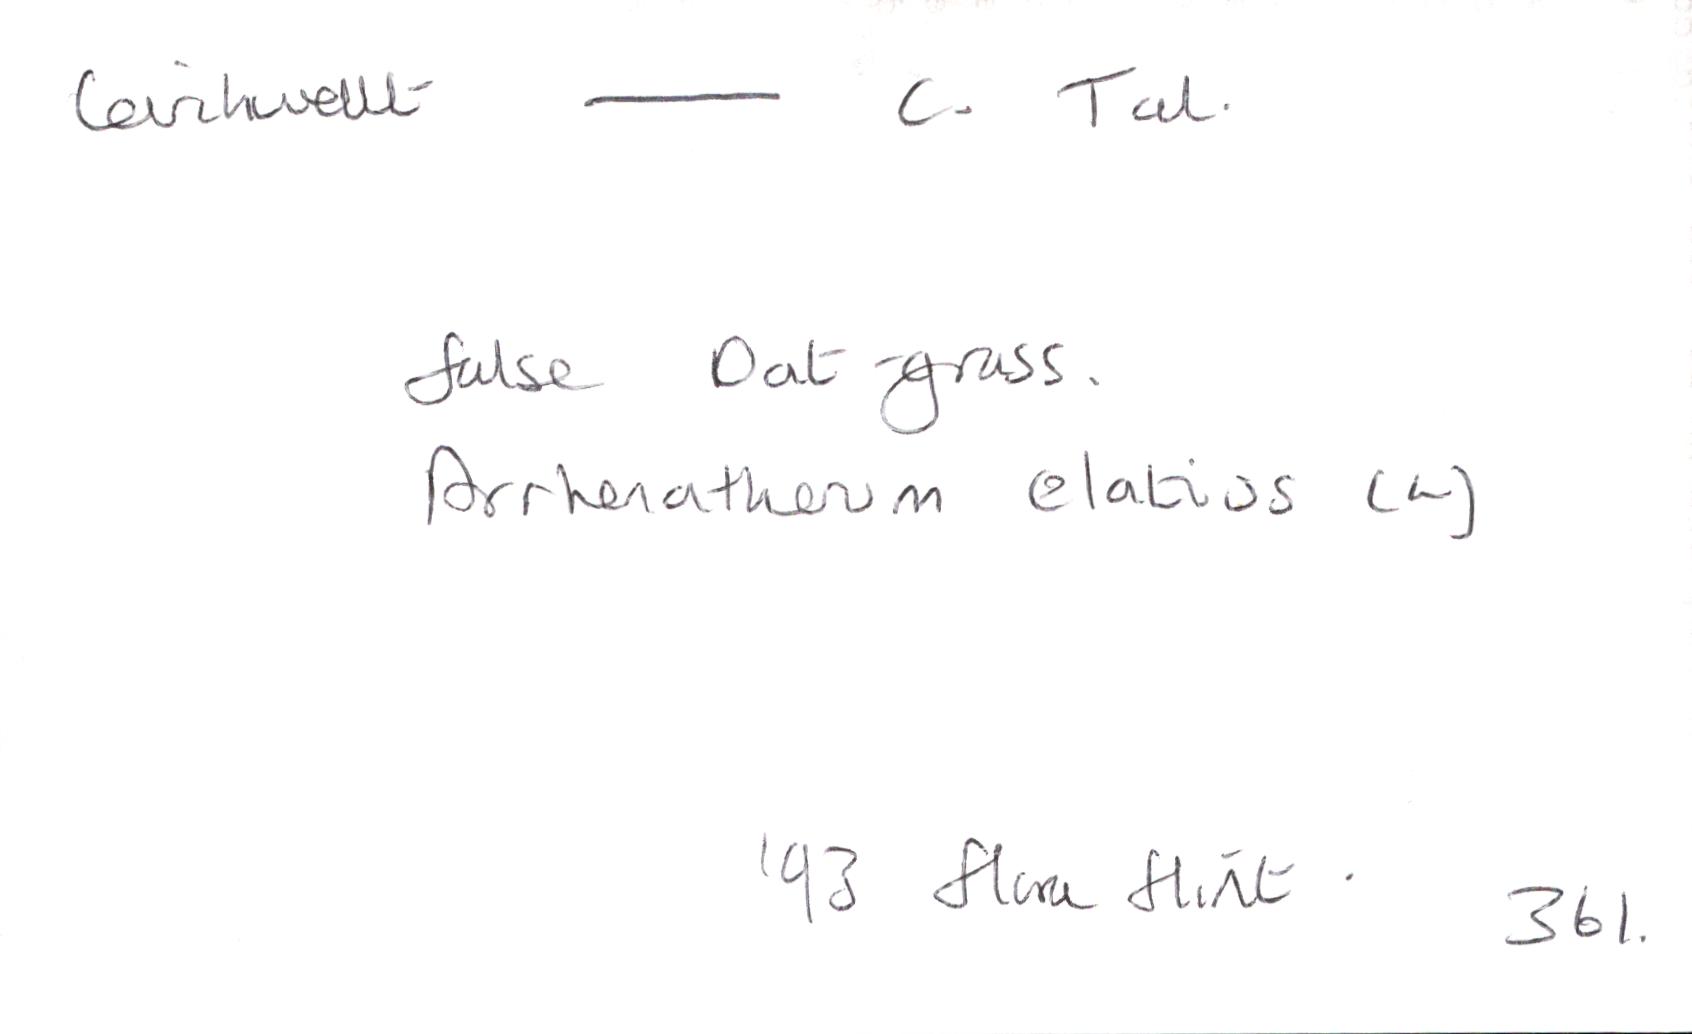 Ceirchwellt — C. Tal.
false Oat-grass.
Arrhenatherum elatius (L)
'93 flora flint.
361.